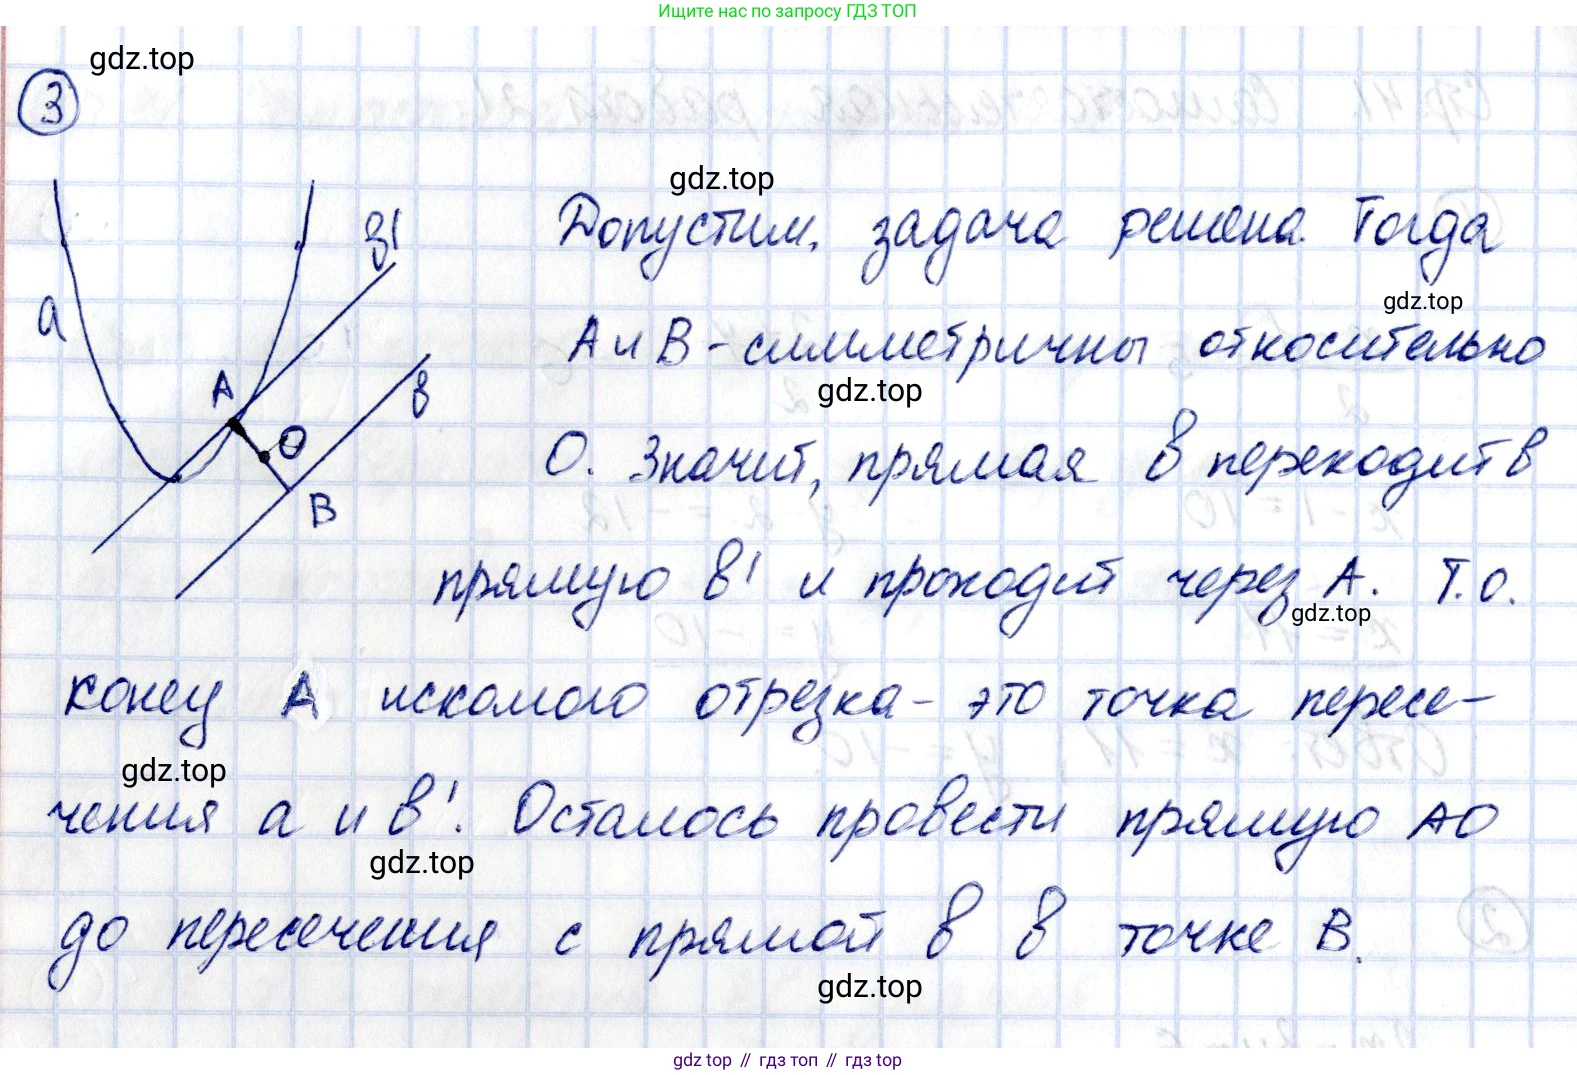 Ищите нас по запросу ГДЗ ТОП
gdz.top
3
gdz.top
в'
Допустим, задача решена. Тогда
gdz.top
а
А и В - симметричны относительно
gdz.top
А
в
О
О. Значит, прямая в переходит в
В
прямую в' и проходит через А. Т.о.
gdz.top
конец А искомого отрезка - это точка пересе-
gdz.top
чения а и в'. Осталось провести прямую АО
gdz.top
до пересечения с прямой в в точке В.
gdz.top
gdz top // гдз топ // гдз top